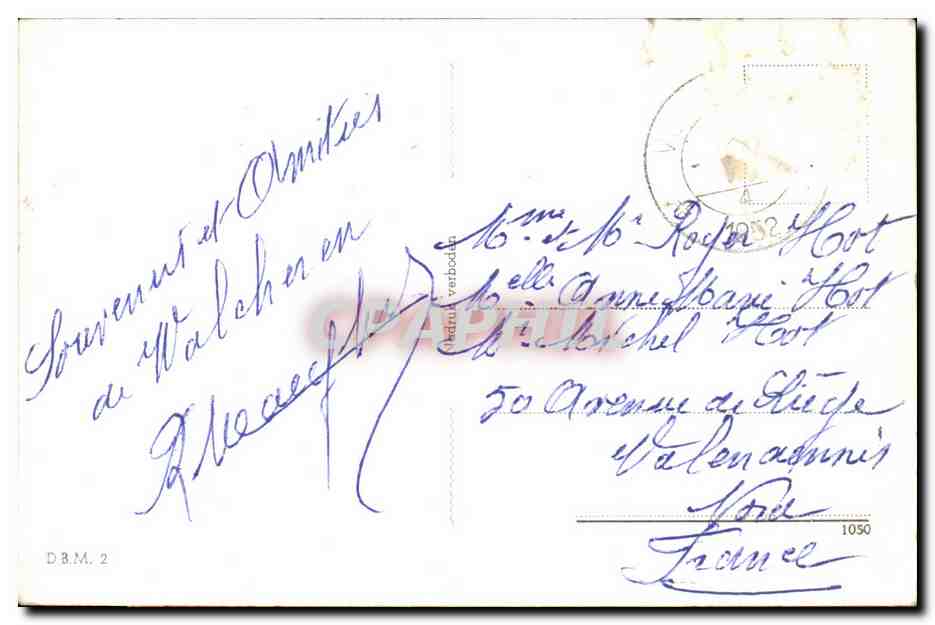 Souvenir et Amitiés
de Walcheren
Mme et Mr Roger Hot
Melle Anne Marie Hot
Mr Michel Hot
50 Avenue de Liège
Valenciennes
Nord
France
Nadruk verboden
1952
1050
D.B.M. 2
CPAPHIL